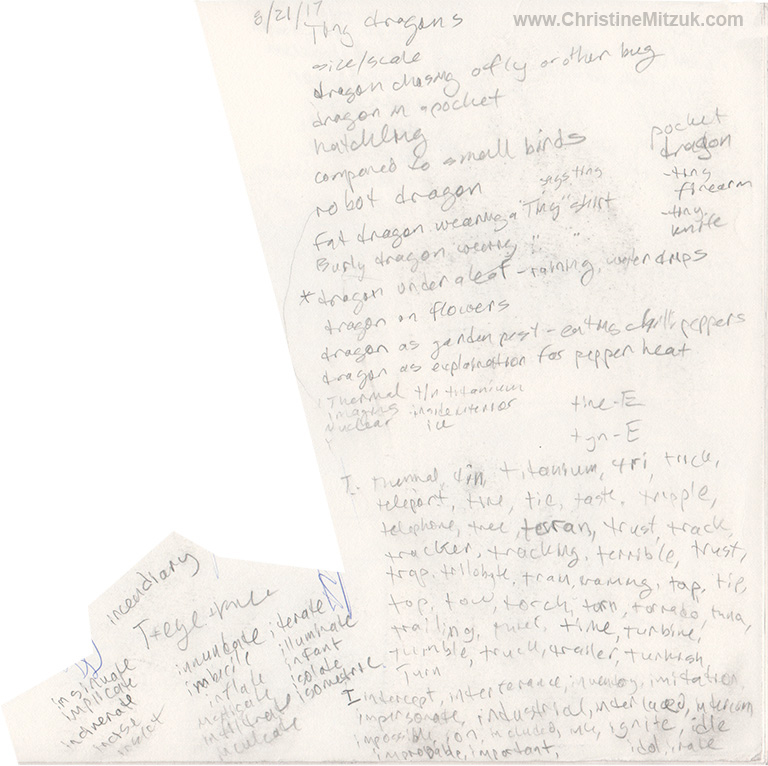 www.ChristineMitzuk.com
8/21/17
Tiny dragons
size/scale
dragon chasing a fly or other bug
dragon in a pocket
hatchling
compared to small birds
robot dragon
Fat dragon wearing a "Tiny" shirt
Burly dragon wearing " "
*dragon under a leaf - raining, water drips
dragon on flowers
dragon as garden pest - eating chili peppers
dragon as explanation for pepper heat
pocket
dragon
- tiny
firearm
- tiny
knife
Thermal tin titanium
imaging inside interior
Nuclear
tine-E
tyn-E
T. thermal, tin, titanium, tri, trick,
teleport, tine, tie, taste, tripple,
telephone, tree, terran, trust, track,
tracker, tracking, terrible, trust,
trap, trilobyte, train, training, tap, tip,
top, tow, torch, turn, tornado, tuna,
trailing, time, turbine,
truck, trailer, turkish,
Turn
I intercept, interference, inventory, imitation,
impersonate, industrial, interlaced, intercom
impossible, ion, included, ignite, idle
improbable, important, idol, irate
incendiary
insinuate
implicate
incinerate
incise
innundate iterate
illuminate
inflate infant
isolate
infiltrate isometric
inculcate